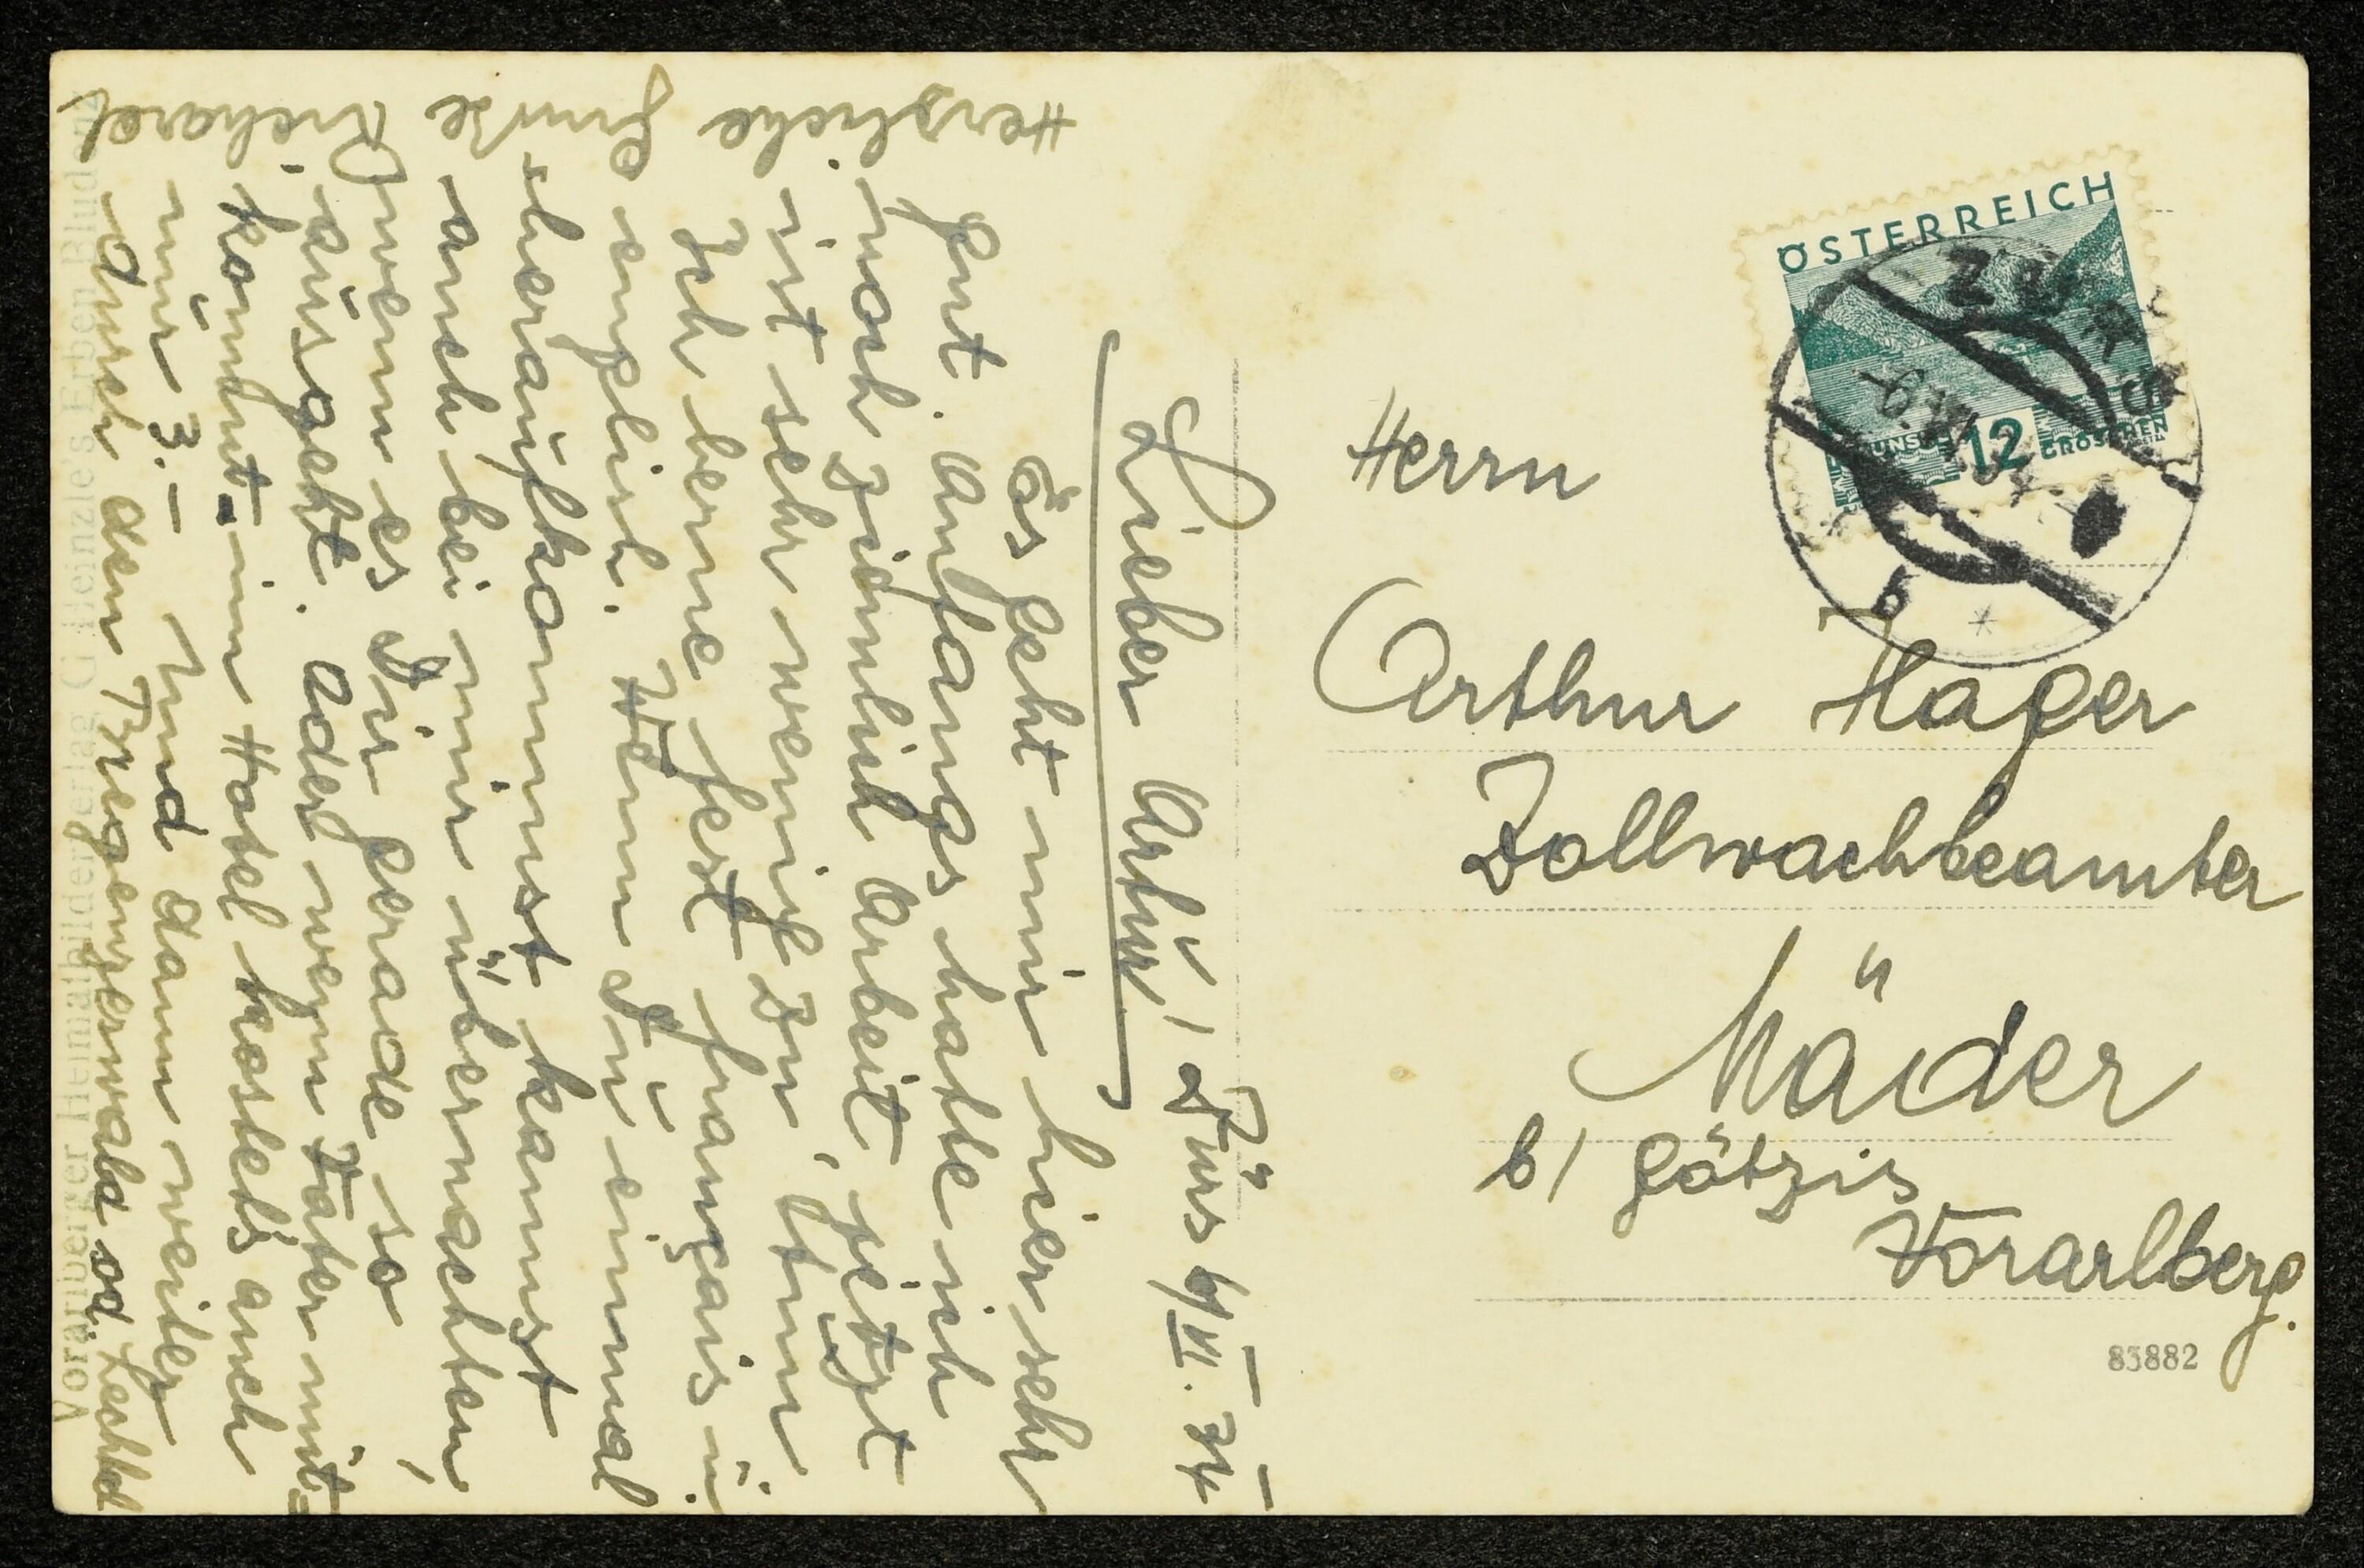 Lieber Artur, Zürs 6/VI. 34
Es geht mir hier sehr
gut. Anfangs hatte ich
noch ziemlich Arbeit, jetzt
ist sehr wenig zu tun.
Ich lerne fest français ü.
englisch. Wenn Dü einmal
heraüfkommst kannst
auch bei mir übernachten,
wenn es Dir gerade so
aüsgeht. Oder wenn Vater mit-
kommt - im Hotel kostets auch
nür 3.— Und dann weiter
durch den Bregenzerwald od. Lechtal
Herzliche Grüße Richard
Herrn
Arthur Hager
Zollwachbeamter
Mäder
b/ Götzis
Vorarlberg.
ÖSTERREICH
12
GROSCHEN
b
*
85882
Vorarlberger Heimatbilderverlag C. Heinzle's Erben Bludenz